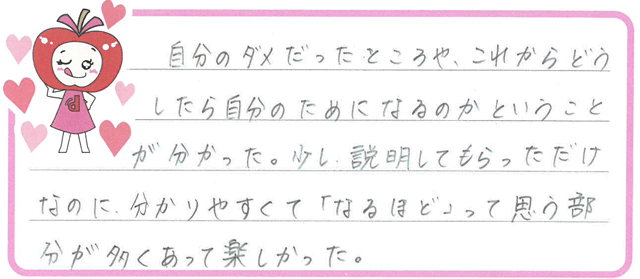 自分のダメだったところや、これからどう
したら自分のためになるのかということ
が分かった。少し、説明してもらっただけ
なのに、分かりやすくて「なるほど」って思う部
分が多くあって楽しかった。